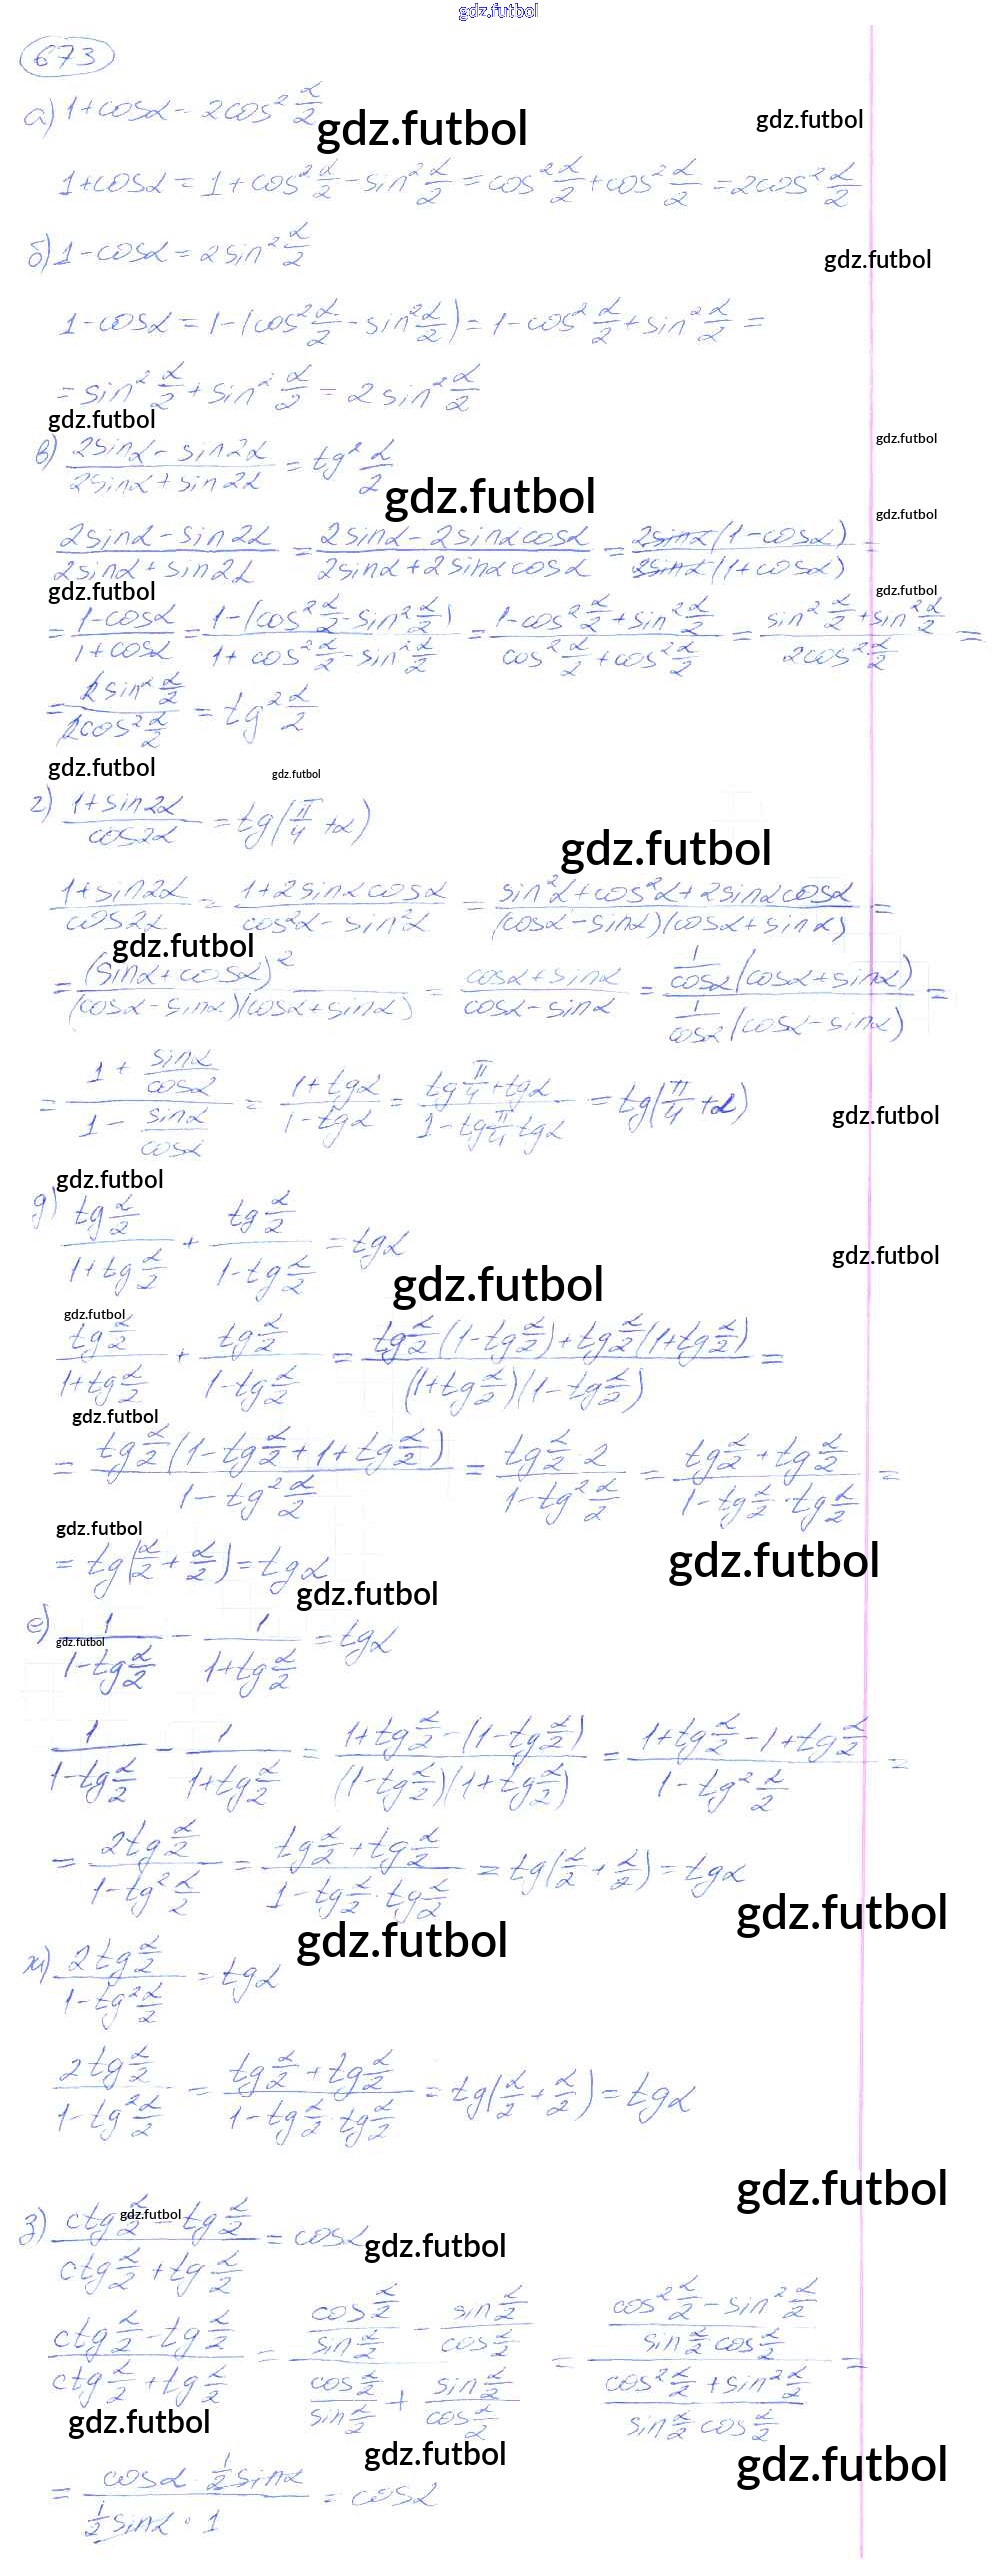 gdz.futbol
673
а) 1+cosα = 2cos² α/2
gdz.futbol
gdz.futbol
1+cosα = 1+cos² α/2 - sin² α/2 = cos² α/2 + cos² α/2 = 2cos² α/2
б) 1-cosα = 2sin² α/2
gdz.futbol
1-cosα = 1-(cos² α/2 - sin² α/2) = 1-cos² α/2 + sin² α/2 =
= sin² α/2 + sin² α/2 = 2sin² α/2
gdz.futbol
gdz.futbol
в) (2sinα - sin2α)/(2sinα + sin2α) = tg² α/2
gdz.futbol
gdz.futbol
(2sinα - sin2α)/(2sinα + sin2α) = (2sinα - 2sinαcosα)/(2sinα + 2sinαcosα) = (2sinα(1-cosα))/(2sinα(1+cosα)) =
gdz.futbol
gdz.futbol
= (1-cosα)/(1+cosα) = (1-(cos² α/2 - sin² α/2))/(1+cos² α/2 - sin² α/2) = (1-cos² α/2 + sin² α/2)/(cos² α/2 + cos² α/2) = (sin² α/2 + sin² α/2)/(2cos² α/2) =
= (2sin² α/2)/(2cos² α/2) = tg² α/2
gdz.futbol
gdz.futbol
г) (1+sin2α)/(cos2α) = tg(π/4 + α)
gdz.futbol
(1+sin2α)/(cos2α) = (1+2sinαcosα)/(cos²α - sin²α) = (sin²α + cos²α + 2sinαcosα)/((cosα - sinα)(cosα + sinα)) =
gdz.futbol
= (sinα + cosα)²/((cosα - sinα)(cosα + sinα)) = (cosα + sinα)/(cosα - sinα) = (1/cosα (cosα + sinα))/(1/cosα (cosα - sinα)) =
= (1 + sinα/cosα)/(1 - sinα/cosα) = (1+tgα)/(1-tgα) = (tg π/4 + tgα)/(1-tg π/4 tgα) = tg(π/4 + α)
gdz.futbol
gdz.futbol
д) (tg α/2)/(1+tg α/2) + (tg α/2)/(1-tg α/2) = tgα
gdz.futbol
gdz.futbol
gdz.futbol
(tg α/2)/(1+tg α/2) + (tg α/2)/(1-tg α/2) = (tg α/2 (1-tg α/2) + tg α/2 (1+tg α/2))/((1+tg α/2)(1-tg α/2)) =
gdz.futbol
= (tg α/2 (1-tg α/2 + 1 + tg α/2))/(1-tg² α/2) = (tg α/2 · 2)/(1-tg² α/2) = (tg α/2 + tg α/2)/(1-tg α/2 · tg α/2) =
gdz.futbol
= tg(α/2 + α/2) = tgα
gdz.futbol
gdz.futbol
е) 1/(1-tg α/2) - 1/(1+tg α/2) = tgα
gdz.futbol
1/(1-tg α/2) - 1/(1+tg α/2) = (1+tg α/2 - (1-tg α/2))/((1-tg α/2)(1+tg α/2)) = (1+tg α/2 - 1 + tg α/2)/(1-tg² α/2) =
= (2tg α/2)/(1-tg² α/2) = (tg α/2 + tg α/2)/(1-tg α/2 · tg α/2) = tg(α/2 + α/2) = tgα
gdz.futbol
gdz.futbol
ж) (2tg α/2)/(1-tg² α/2) = tgα
(2tg α/2)/(1-tg² α/2) = (tg α/2 + tg α/2)/(1-tg α/2 · tg α/2) = tg(α/2 + α/2) = tgα
gdz.futbol
gdz.futbol
з) (ctg α/2 - tg α/2)/(ctg α/2 + tg α/2) = cosα
gdz.futbol
(ctg α/2 - tg α/2)/(ctg α/2 + tg α/2) = ((cos α/2)/(sin α/2) - (sin α/2)/(cos α/2))/((cos α/2)/(sin α/2) + (sin α/2)/(cos α/2)) = ((cos² α/2 - sin² α/2)/(sin α/2 cos α/2))/((cos² α/2 + sin² α/2)/(sin α/2 cos α/2)) =
gdz.futbol
gdz.futbol
gdz.futbol
= (cosα · 1/2 sinα)/(1/2 sinα · 1) = cosα